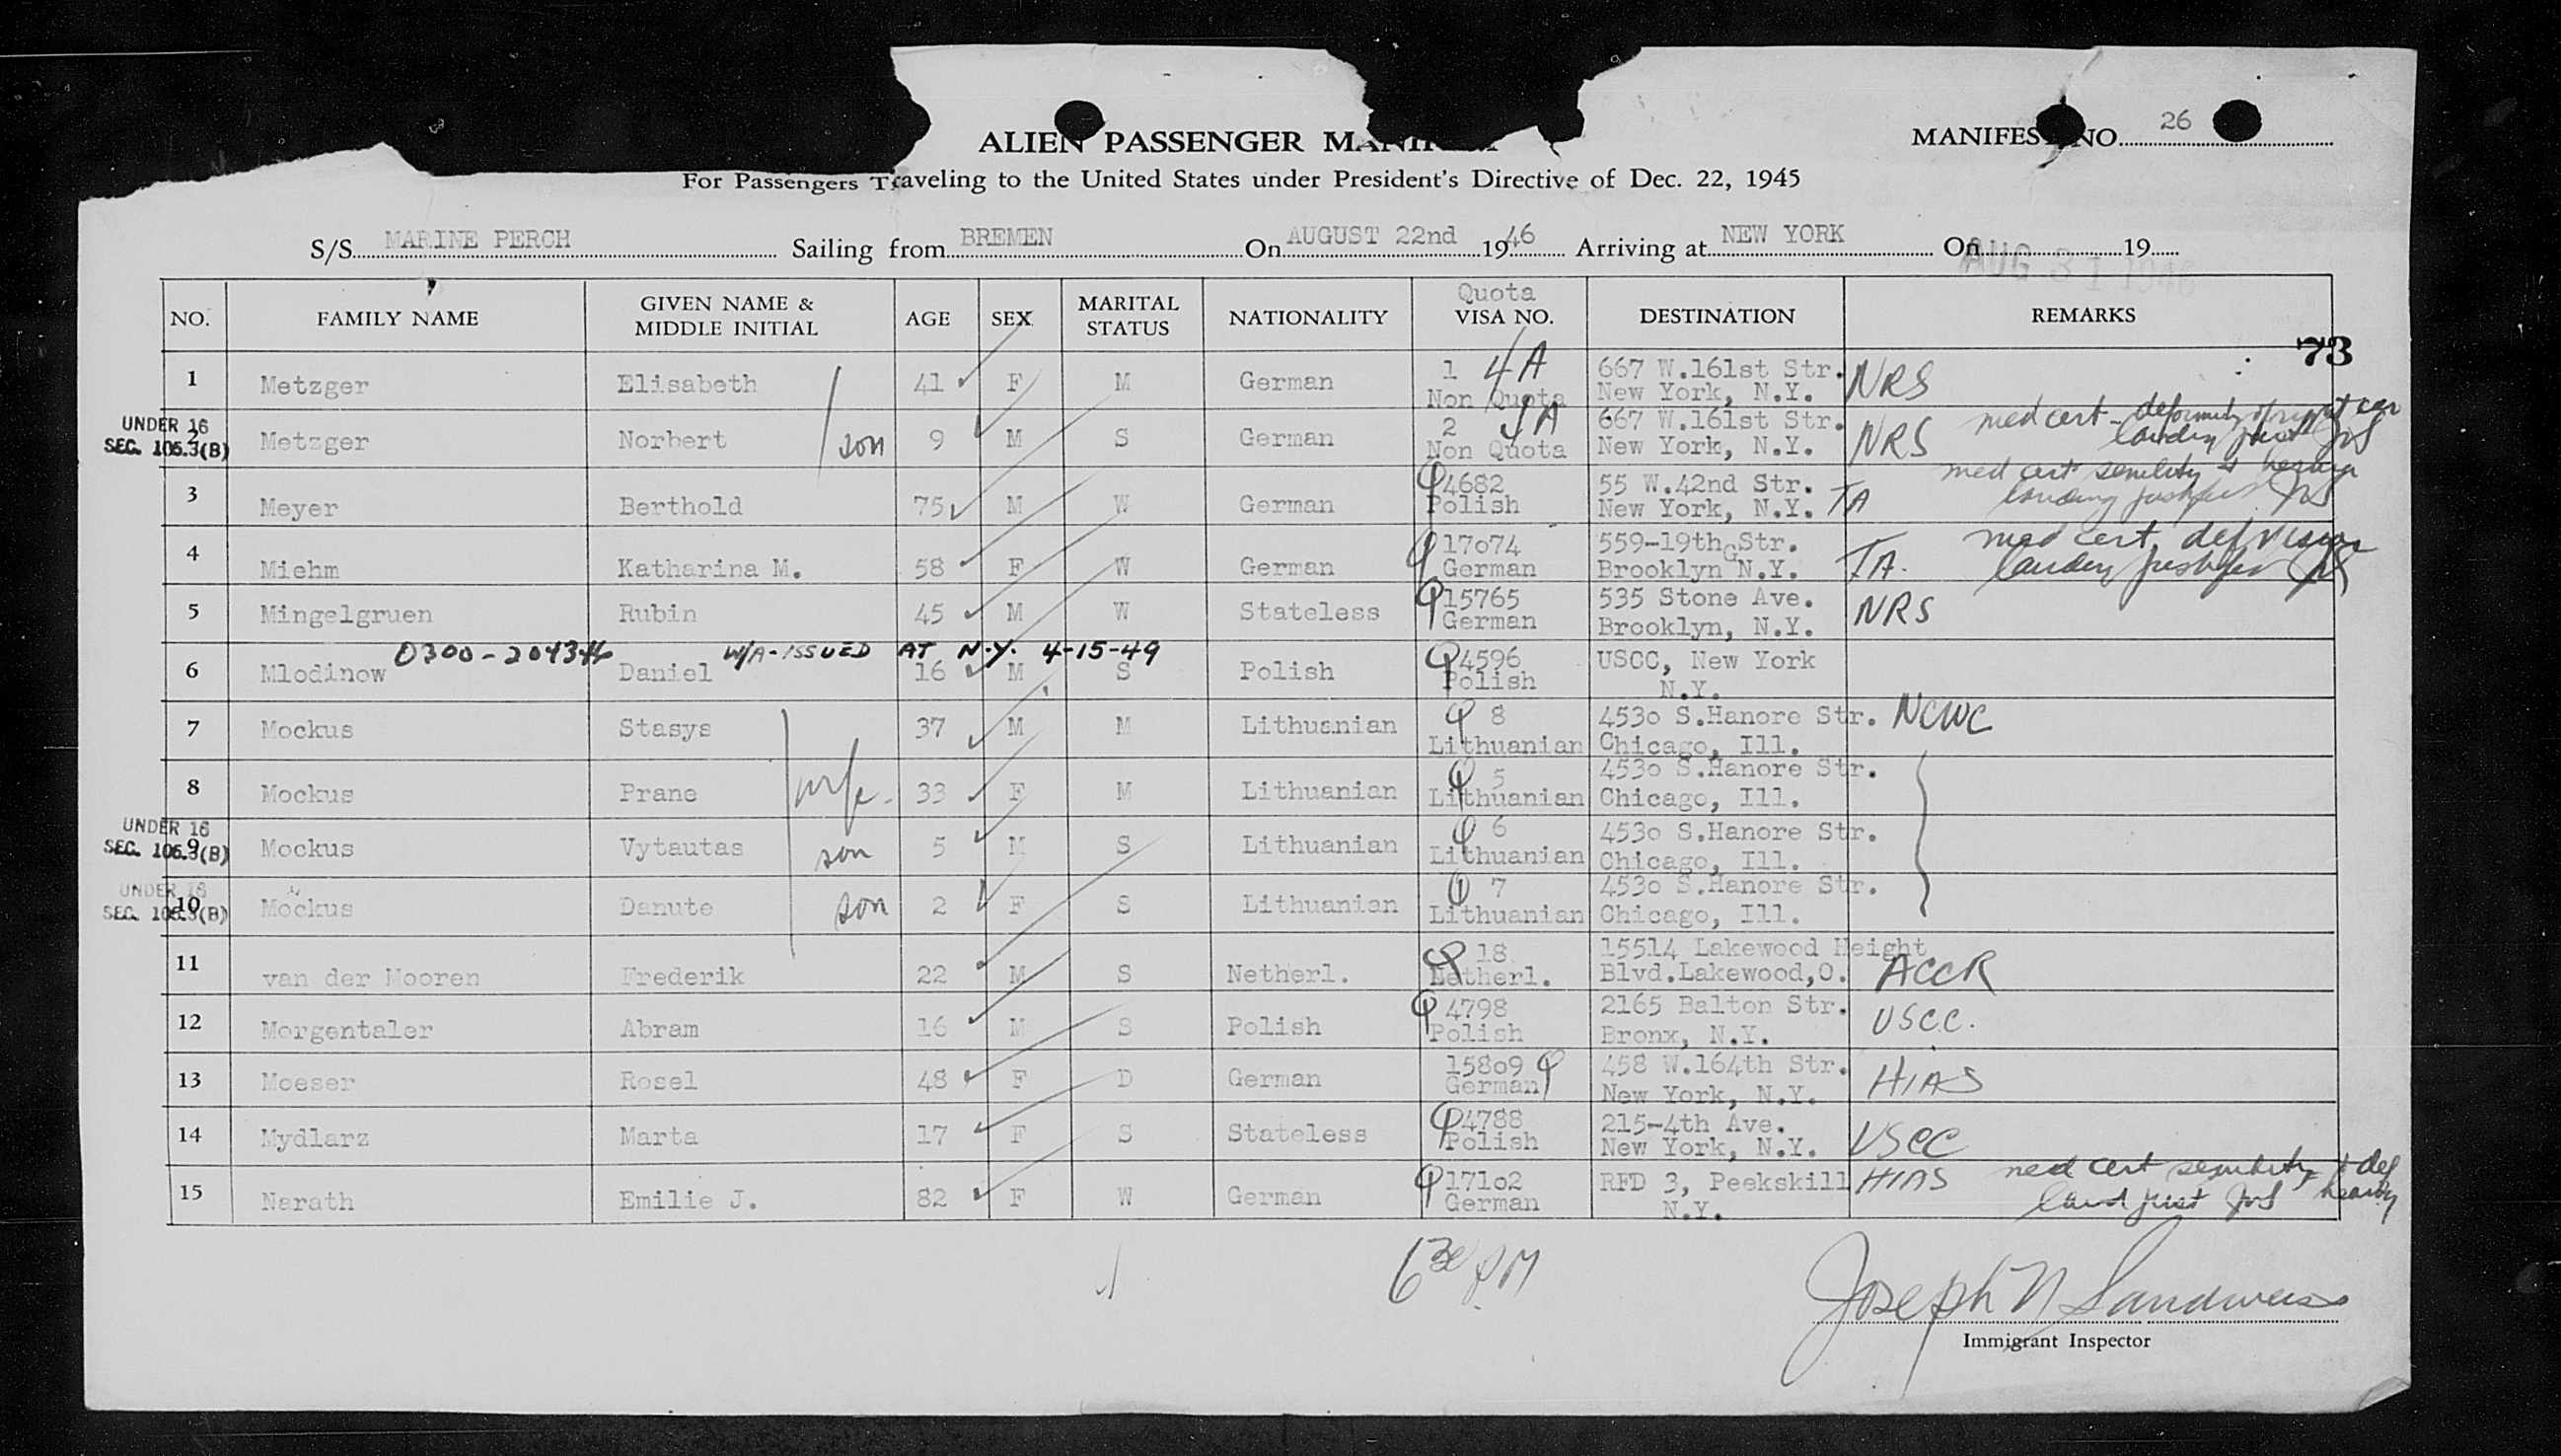 ALIEN PASSENGER
MANIFEST NO. 26
For Passengers Traveling to the United States under President's Directive of Dec. 22, 1945
S/S MARINE PERCH Sailing from BREMEN On AUGUST 22nd 1946 Arriving at NEW YORK On AUG 31 1946 19
NO. FAMILY NAME GIVEN NAME & MIDDLE INITIAL AGE SEX MARITAL STATUS NATIONALITY Quota VISA NO. DESTINATION REMARKS
73
1 Metzger Elisabeth 41 F M German 1 4A 667 W.161st Str. NRS
Non Quota New York, N.Y.
UNDER 16
SEC. 105.3(B)
2 Metzger Norbert son 9 M S German 2 667 W.161st Str. NRS med cert - deformity of right ear
Non Quota New York, N.Y. landing just JNS
3 Meyer Berthold 75 M W German 4682 55 W.42nd Str. TA med cert senility &
Polish New York, N.Y. landing
4 Miehm Katharina M. 58 F W German 17074 559-19th Str. TA. med cert def vision
German Brooklyn N.Y. landing
5 Mingelgruen Rubin 45 M W Stateless 15765 535 Stone Ave. NRS
German Brooklyn, N.Y.
0300-204346 W/A-ISSUED AT N.Y. 4-15-49
6 Mlodinow Daniel 16 M S Polish 4596 USCC, New York
Polish N.Y.
7 Mockus Stasys 37 M M Lithuanian 8 4530 S.Hanore Str. NCWC
Lithuanian Chicago, Ill.
8 Mockus Prane wife. 33 F M Lithuanian 5 4530 S.Hanore Str.
Lithuanian Chicago, Ill.
UNDER 16
SEC. 105.3(B)
9 Mockus Vytautas son 5 M S Lithuanian 6 4530 S.Hanore Str.
Lithuanian Chicago, Ill.
UNDER 16
SEC. 105.3(B)
10 Mockus Danute son 2 F S Lithuanian 7 4530 S.Hanore Str.
Lithuanian Chicago, Ill.
11 van der Mooren Frederik 22 M S Netherl. 18 15514 Lakewood Height
Netherl. Blvd.Lakewood,O. ACCR
12 Morgentaler Abram 16 M S Polish 4798 2165 Balton Str. USCC.
Polish Bronx, N.Y.
13 Moeser Rosel 48 F D German 15809 458 W.164th Str. HIAS
German New York, N.Y.
14 Mydlarz Marta 17 F S Stateless 4788 215-4th Ave. USCC
Polish New York, N.Y.
15 Narath Emilie J. 82 F W German 17102 RFD 3, Peekskill HIAS med cert senility & def
German N.Y. land just JNS hearing
6 30 PM
Joseph N Sandweiss
Immigrant Inspector